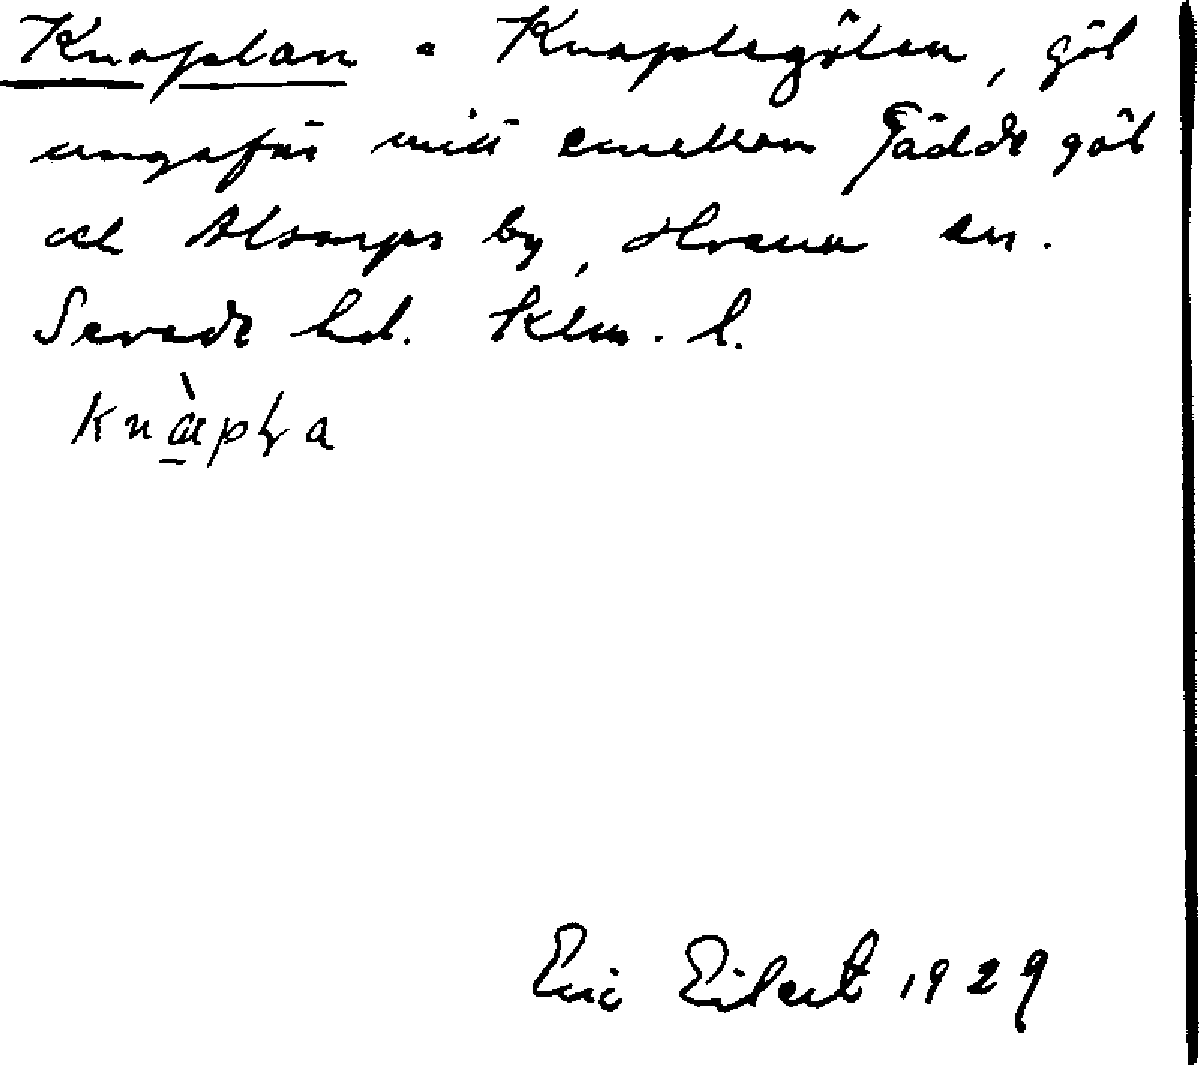 Knaplan = Knaplegölen, göl
ungefär mitt emellan Gädde göl
och Alsarps by, Hvena sn.
Sevede hd. Klm. l.
Eric Eilert 1929